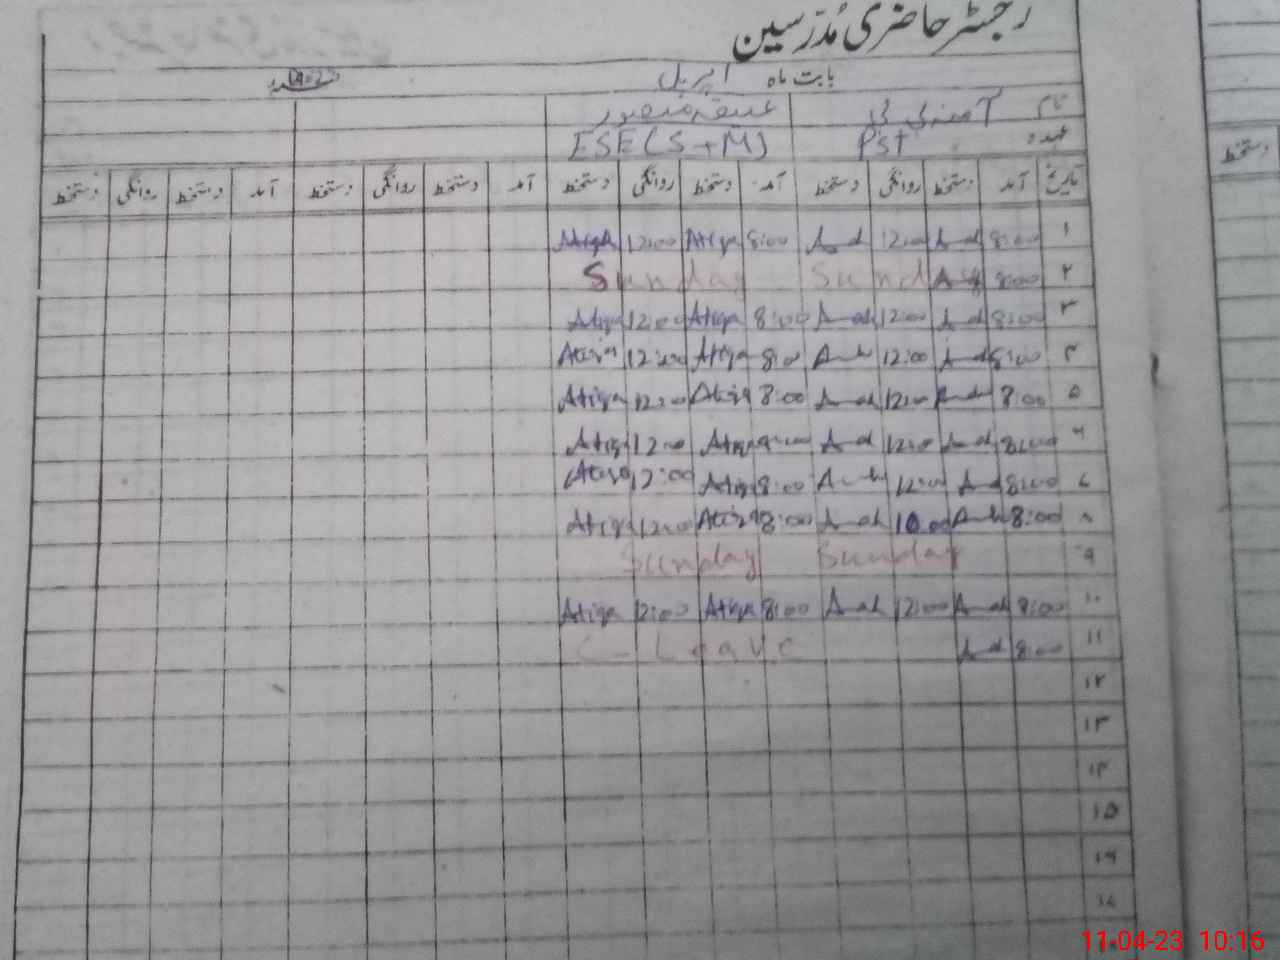 رجسٹر حاضری مُدرسین
بابت ماہ اپریل
نام آمنہ بی بی عتیقہ منصور
عہدہ PST ESE (S+M)
تاریخ آمد دستخط روانگی دستخط آمد دستخط روانگی دستخط آمد دستخط روانگی دستخط آمد دستخط روانگی دستخط
دستخط
۱ 8:00 12:00 8:00 Atiqa 12:00 Atiqa
۲ 8:00 Sund Sunday
۳ 8:00 12:00 8:00 Atiqa 12:00 Atiqa
۴ 8:00 12:00 8:00 Atiqa 12:00 Atiqa
۵ 8:00 12:00 8:00 Atiqa 12:00 Atiqa
۶ 8:00 12:00 Atiqa 12:00 Atiqa
۷ 8:00 12:00 8:00 Atiqa 12:00 Atiqa
۸ 8:00 10:00 8:00 Atiqa 12:00 Atiqa
۹ Sunday Sunday
۱۰ 8:00 12:00 8:00 Atiqa 12:00 Atiqa
۱۱ 8:00 C-Leave
۱۲
۱۳
۱۴
۱۵
۱۶
۱۷
11-04-23 10:16